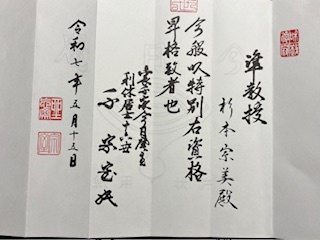 準教授
杉本宗美殿
今般以特別右資格
畢格致者也
裏千家今日庵主
利休居士十六世
千 宗室
令和七年五月十五日